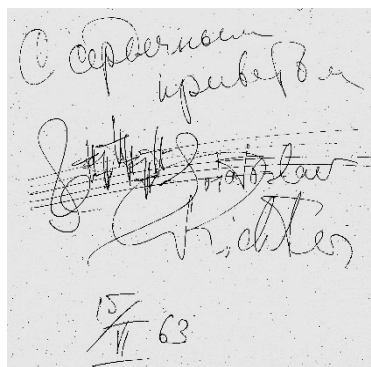 С сердечным
приветом
Sviatoslav
Richter
15/VI 63